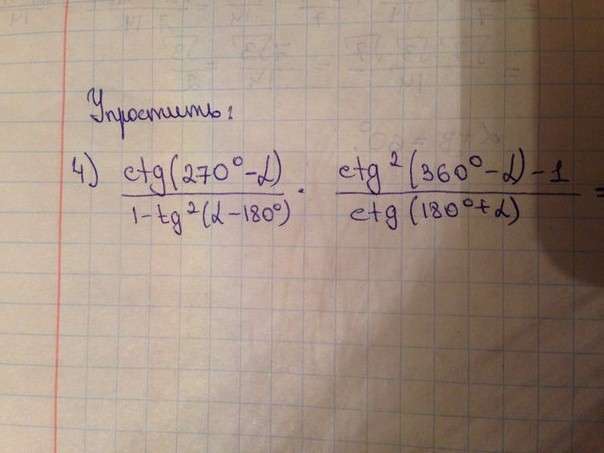 Упростить:
4) ctg(270°-α)/1-tg²(α-180°) · ctg²(360°-α)-1/ctg(180°+α) =